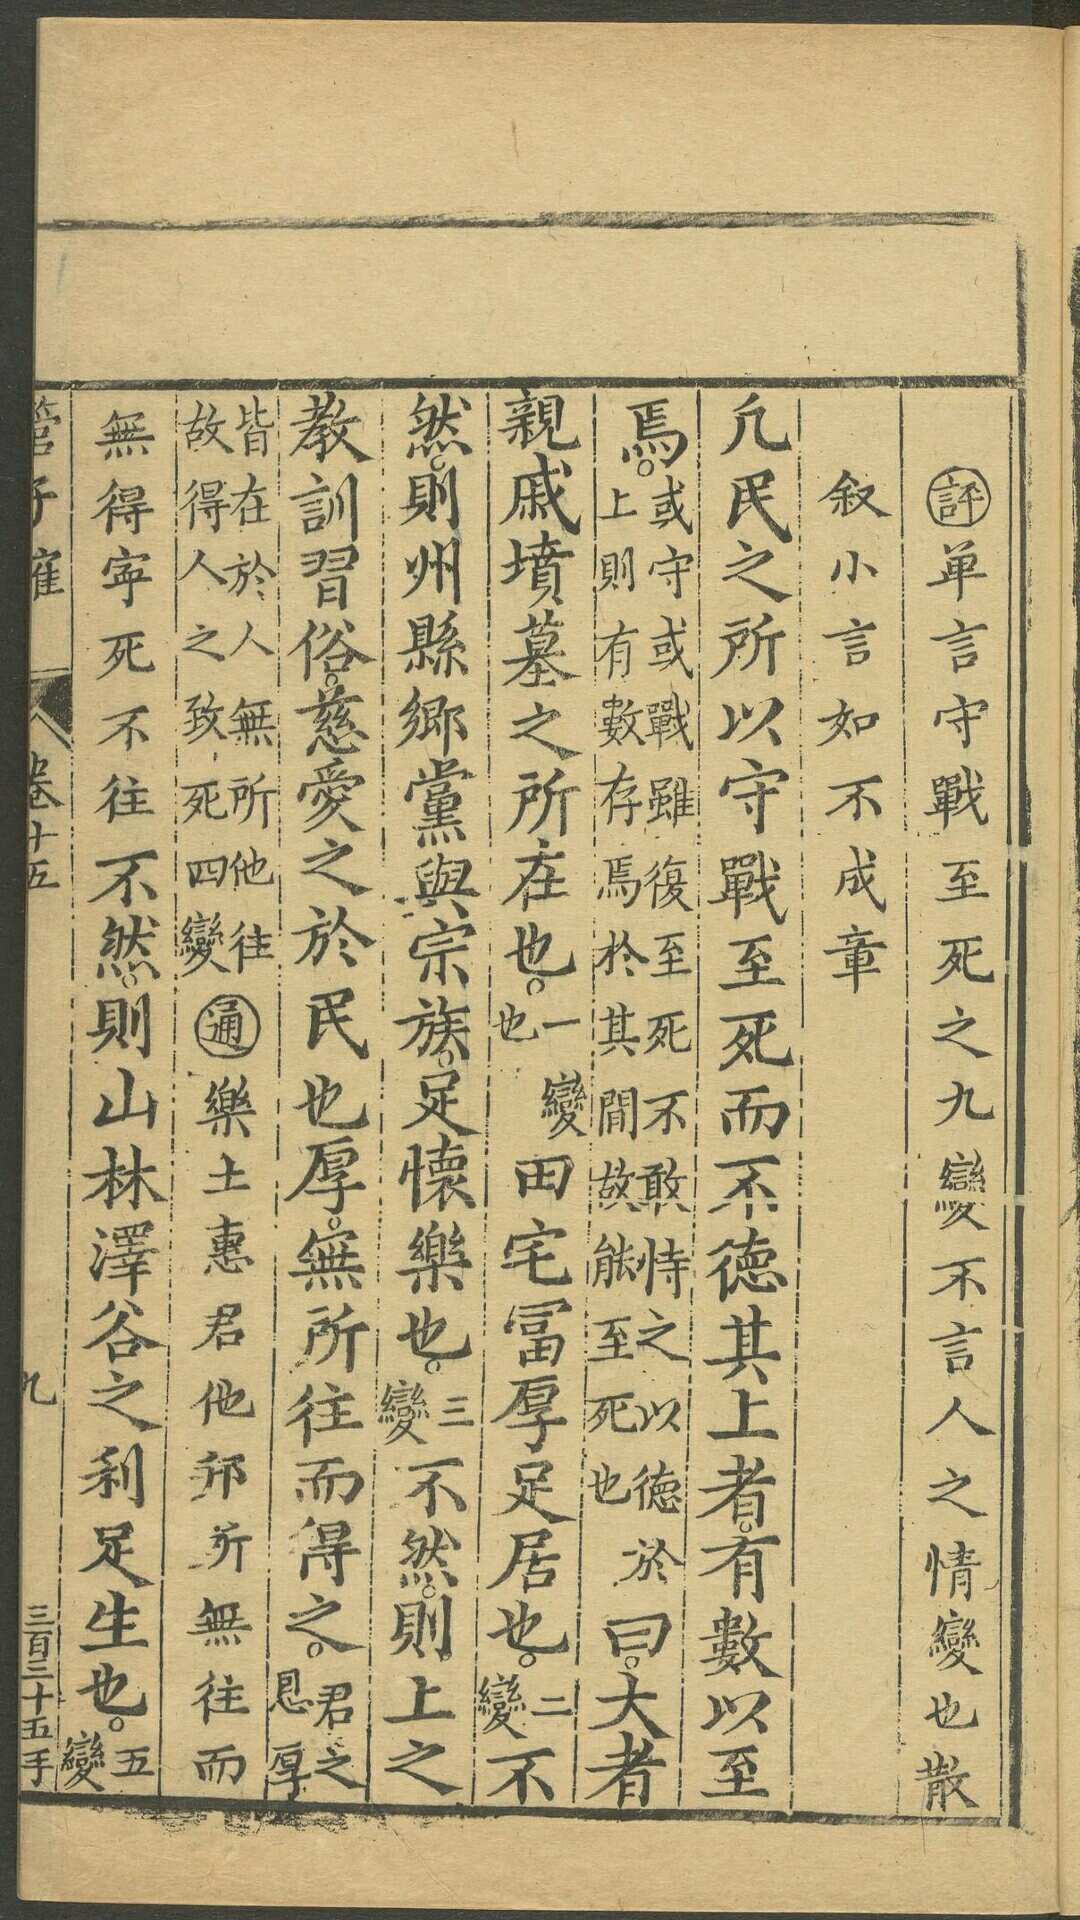 評單言守戰至死之九變不言人之情變也散
叙小言如不成章
凢民之所以守戰至死而不德其上者有數以至
焉或守或戰雖復至死不敢恃之以德於上則有數存焉於其間故能至死也曰大者
親戚墳墓之所在也一變也田宅冨厚足居也二變不
然則州縣鄉黨與宗族足懷樂也三變不然則上之
教訓習俗慈愛之於民也厚無所往而得之君之恩厚
皆在於人無所他往故得人之致死四變通樂土惠君他邦所無往而
無得寕死不往不然則山林澤谷之利足生也五變
管子榷 卷十五 九 三百三十五手